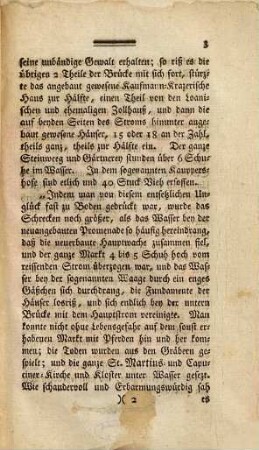 3
seine unbändige Gewalt erhalten; so riß es die
übrigen 2 Theile der Brücke mit sich fort, stürz-
te das angebaut gewesene Kaufmann-Krazerische
Haus zur Hälfte, einen Theil von den Loani-
schen und ehemaligen Zollhauß, und dann die
auf beyden Seiten des Stroms hinunter ange-
baut gewesene Häuser, 15 oder 18 an der Zahl,
theils ganz, theils zur Hälfte ein. Der ganze
Steinweeg und Gärtnerey stunden über 6 Schu-
he im Wasser. In dem sogenannten Kauppers-
hose sind etlich und 40 Stuck Vieh ersoffen.
„Indem man von diesem entsetzlichen Un-
glück fast zu Boden gedrückt war, wurde das
Schrecken noch größer, als das Wasser bey der
neuangebauten Promenade so häufig hereindrang,
daß die neuerbaute Hauptwache zusammen fiel,
und der ganze Markt 4 bis 5 Schuh hoch vom
reissenden Strom überzogen war, und das Was-
ser bey der sogenannten Waage durch ein enges
Gäßchen sich durchdrang, die Fundamente der
Häuser losriß, und sich endlich bey der untern
Brücke mit dem Hauptstrom vereinigte. Man
konnte nicht ohne Lebensgefahr auf dem sonst er-
habenen Markt mit Pferden hin und her kom-
men; die Toden wurden aus den Gräbern ge-
spielt; und die ganze St. Martins- und Capu-
ciner-Kirche und Kloster unter Wasser gesezt.
Wie schaudervoll und Erbarmungswürdig sah
)( 2 es